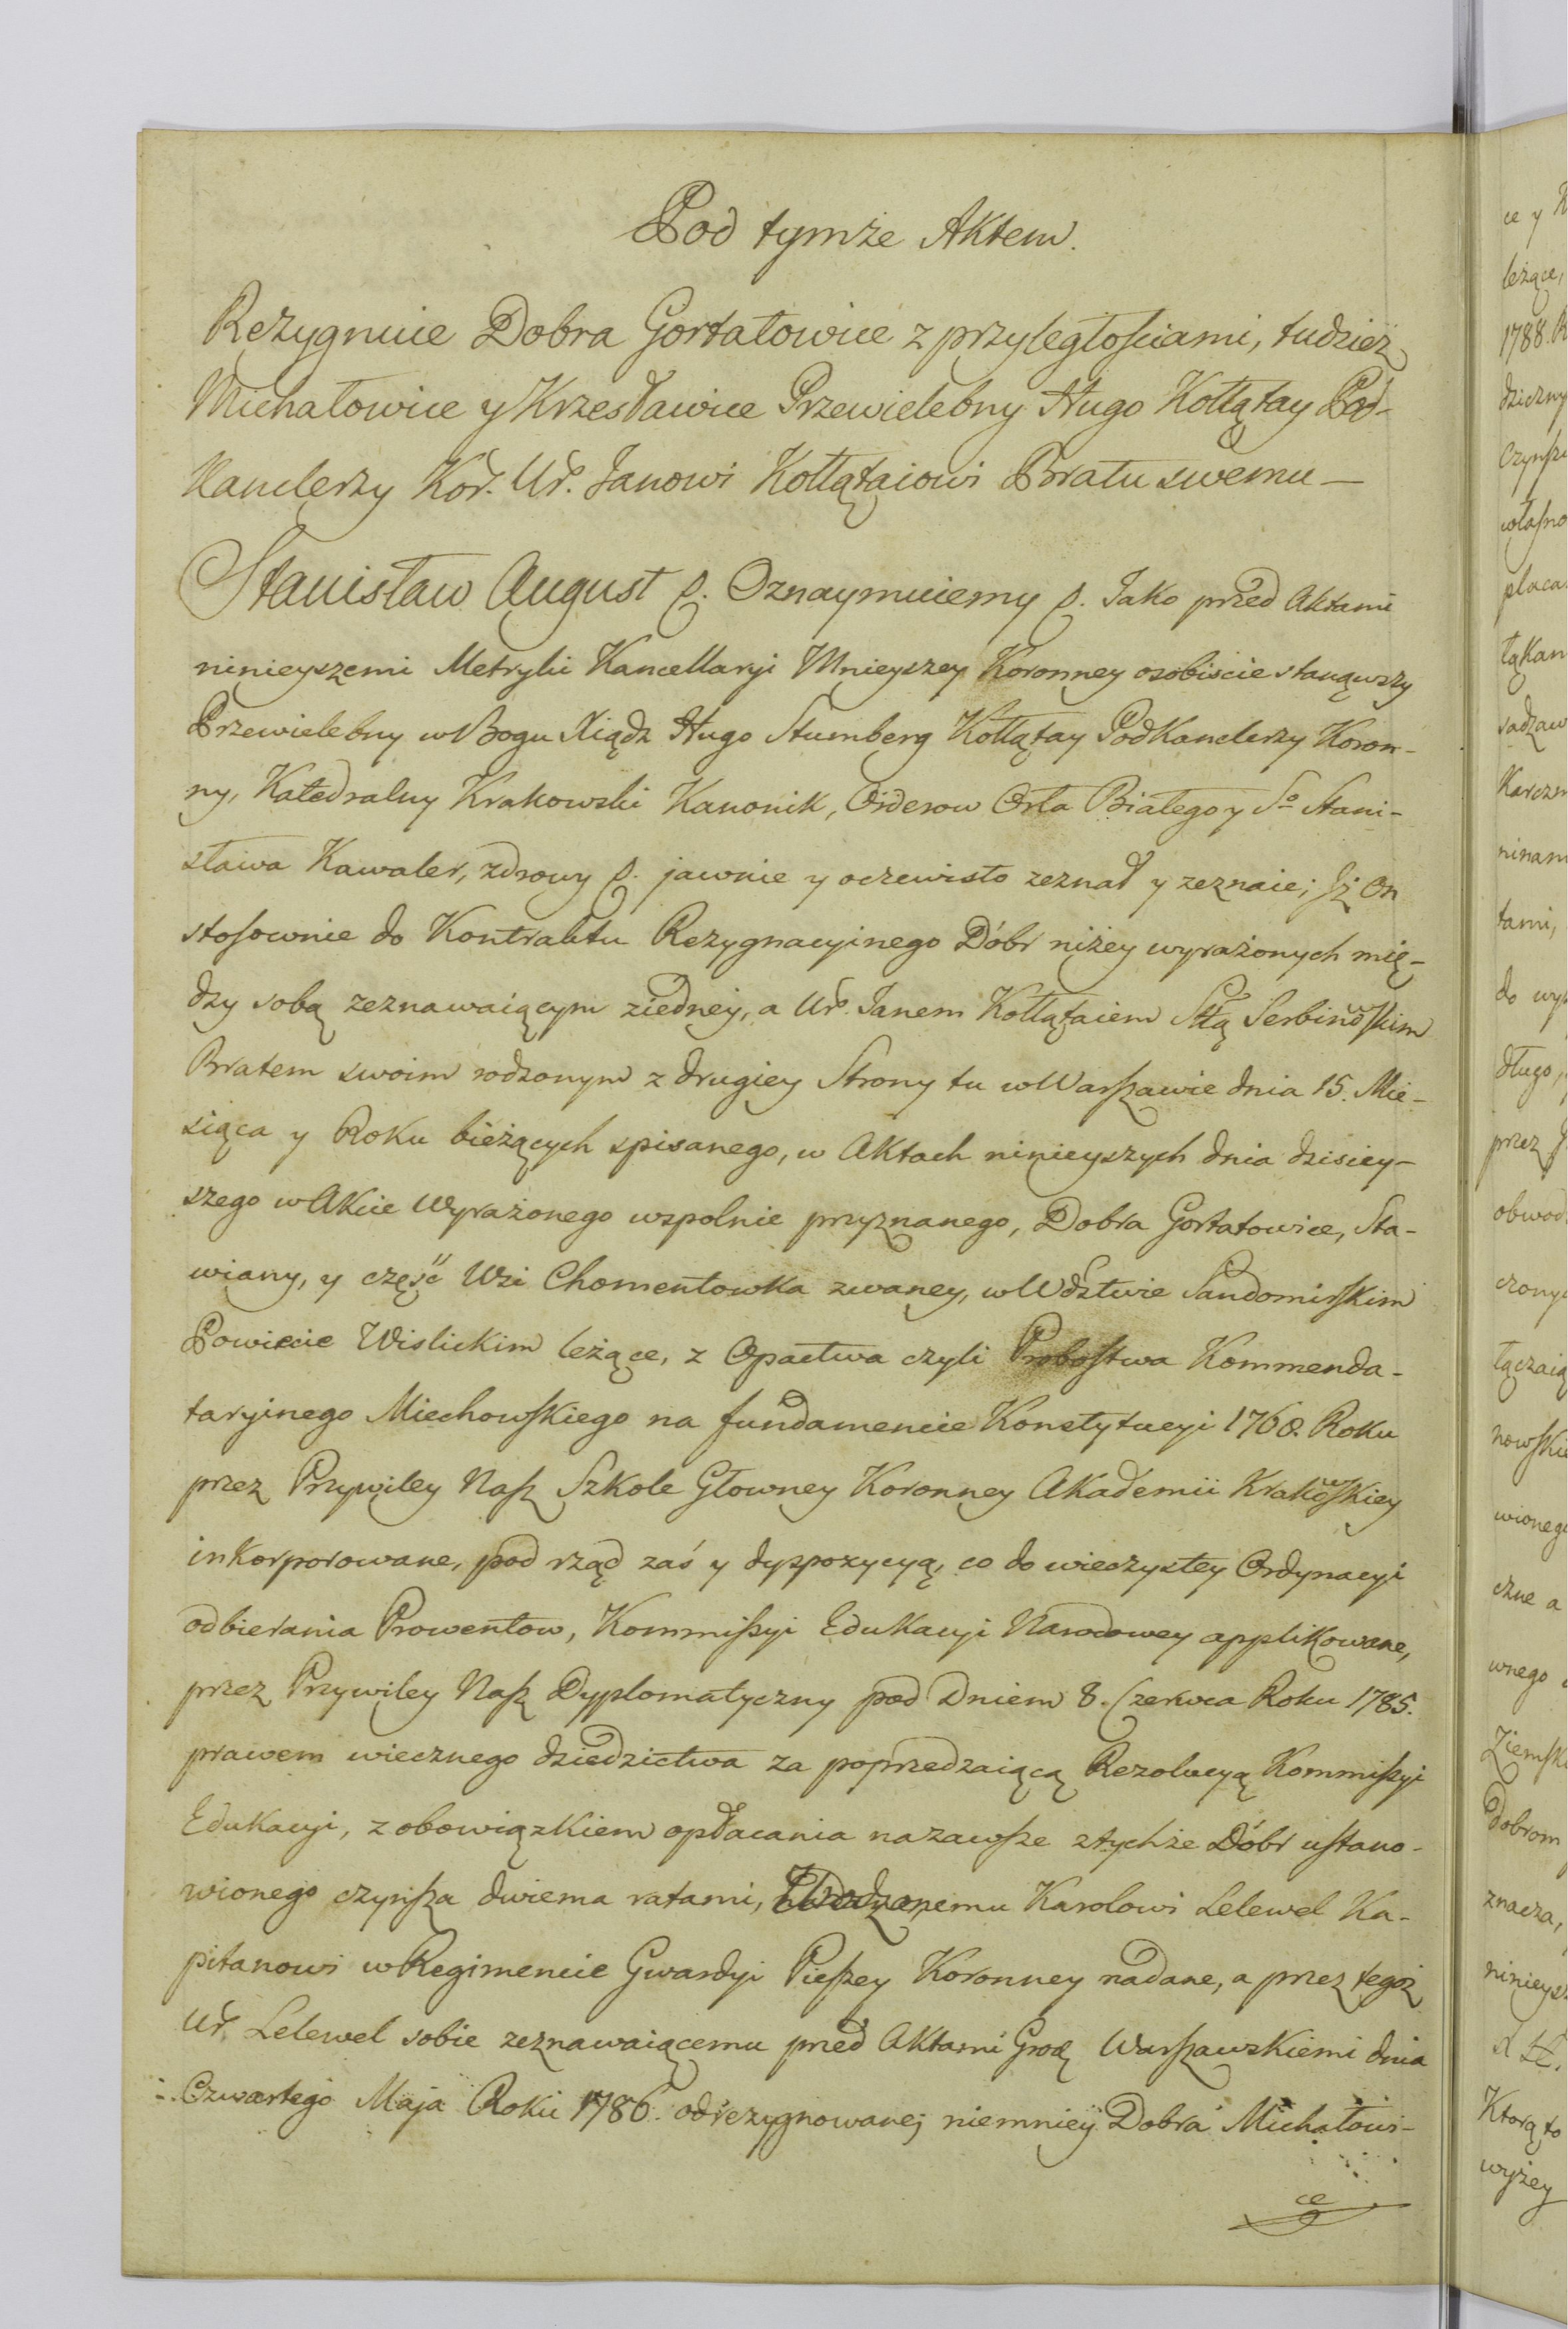 Pod tymże Aktem.
Rezygnuie Dobra Gortatowice z przyległościami, tudzież
Michałowice y Krzesławice Przewielebny Hugo Kołłątay Pod-
kanclerzy Kor. Ur. Janowi Kołłątaiowi Bratu swemu —
Stanisław August p. Oznaymuiemy p. Jako przed Aktami
ninieyszemi Metryki Kancellaryi Mnieyszey Koronney osobiscie stanąwszy
Przewielebny w Bogu Xiądz Hugo Stumberg Kołłątay PodKanclerzy Koron-
ny, Katedralny Krakowski Kanonik, Orderow Orła Białego y So Stani-
sława Kawaler, zdrowy p. jawnie y oczewisto zeznał y zeznaie; Jż On
stosownie do Kontraktu Rezygnacyinego Dóbr niżey wyrażonych mię-
dzy sobą zeznawaiącym ziedney, a Ur. Janem Kołłątaiem Sttą Serbinowskim
Bratem swoim rodzonym z drugiey Strony tu w Warszawie dnia 15. Mie-
siąca y Roku bieżących spisanego, w Aktach ninieyszych dnia dzisiey-
szego w Akcie wyrażonego wspolnie przyznanego, Dobra Gortatowice, Sta-
wiany, y część Wsi Chomentowka zwaney, w Wdztwie Sandomirskim
Powiecie Wislickim leżące, z Opactwa czyli Probostwa Kommenda-
taryinego Miechowskiego na fundamencie Konstytucyi 1768. Roku
przez Przywiley Nasz Szkole Głowney Koronney Akademii Krakowskiey
inkorporowane, pod rząd zaś y dyspozycyą, co do wieczystey Ordynacyi
odbierania Prowentow, Kommissyi Edukacyi Narodowey applikowane,
przez Przywiley Nasz Dyplomatyczny pod Dniem 8. Czerwca Roku 1785.
prawem wiecznego dziedzictwa za poprzedzaiącą Rezolucyą Kommissyi
Edukacyi, z obowiązkiem opłacania nazawsze z tychże Dóbr ustano-
wionego czynsza dwiema ratami, Urodzonemu Karolowi Lelewel Ka-
pitanowi w Regimencie Gwardyi Pieszey Koronney nadane, a przez tegoż
Ur. Lelewel sobie zeznawaiącemu przed Aktami Grodz Warszawskiemi dnia
Czwartego Maja Roku 1786. odrezygnowane; niemniey Dobra Michałowi-
ce